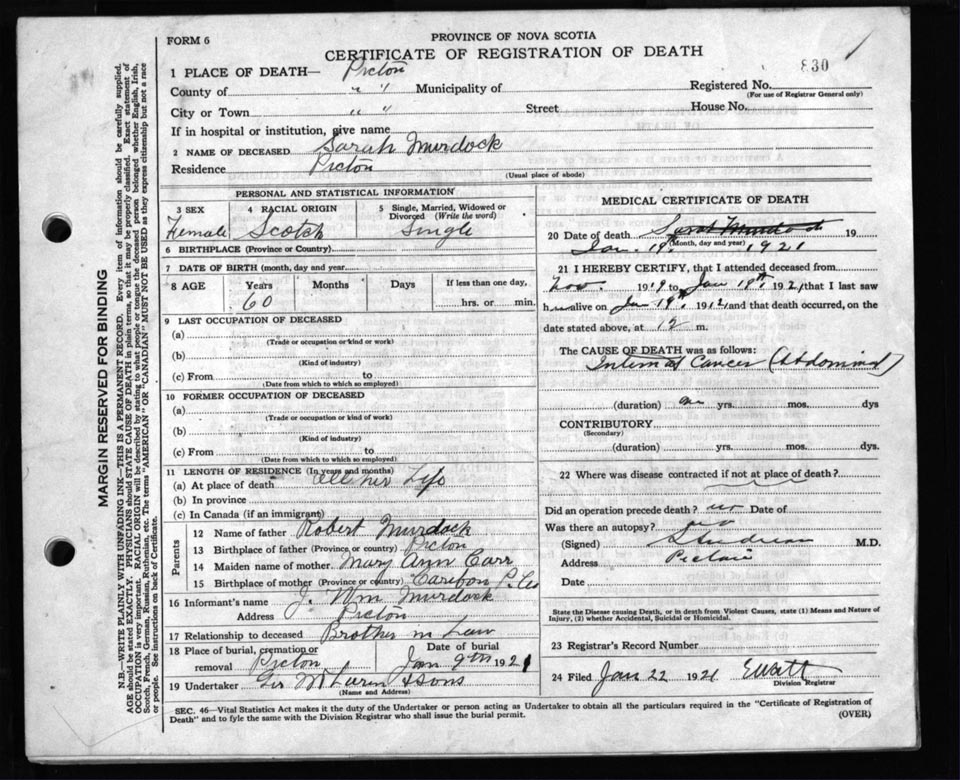 FORM 6
PROVINCE OF NOVA SCOTIA
CERTIFICATE OF REGISTRATION OF DEATH
830
1 PLACE OF DEATH— Picton
County of " " Municipality of
Registered No.
(For use of Registrar General only)
City or Town " " Street House No.
If in hospital or institution, give name
2 NAME OF DECEASED Sarah Murdock
Residence Picton
(Usual place of abode)
PERSONAL AND STATISTICAL INFORMATION
3 SEX Female
4 RACIAL ORIGIN Scotch
5 Single, Married, Widowed or Divorced (Write the word) Single
6 BIRTHPLACE (Province or Country)
7 DATE OF BIRTH (month, day and year)
8 AGE Years Months Days If less than one day,
60 hrs. or min.
9 LAST OCCUPATION OF DECEASED
(a)
(Trade or occupation or kind or work)
(b)
(Kind of industry)
(c) From to
(Date from which to which so employed)
10 FORMER OCCUPATION OF DECEASED
(a)
(Trade or occupation or kind of work)
(b)
(Kind of industry)
(c) From to
(Date from which to which so employed)
11 LENGTH OF RESIDENCE (In years and months)
(a) At place of death all her Life
(b) In province
(c) In Canada (if an immigrant)
Parents
12 Name of father Robert Murdock
13 Birthplace of father (Province or country) Picton
14 Maiden name of mother Mary Ann Carr
15 Birthplace of mother (Province or country) Caribou P. Co
16 Informant's name J. Wm Murdock
Address Picton
17 Relationship to deceased Brother in Law
18 Place of burial, cremation or removal Picton
Date of burial Jan 9th 1921
19 Undertaker Sons
(Name and Address)
MEDICAL CERTIFICATE OF DEATH
20 Date of death Sarah Murdock 19
(Month, day and year)
Jan. 19. 1921
21 I HEREBY CERTIFY, that I attended deceased from
Nov. 1919 to Jan 18th, 1921, that I last saw
h alive on Jan 19th 1912 and that death occurred, on the
date stated above, at 12 m.
The CAUSE OF DEATH was as follows:
Internal Cancer (Abdominal)
(duration) yrs. mos. dys
CONTRIBUTORY
(Secondary)
(duration) yrs. mos. dys.
22 Where was disease contracted if not at place of death?
Did an operation precede death? no Date of
Was there an autopsy? no
(Signed) M.D.
Address Pictou
Date
State the Disease causing Death, or in death from Violent Causes, state (1) Means and Nature of
Injury, (2) whether Accidental, Suicidal or Homicidal.
23 Registrar's Record Number
24 Filed Jan 22 1921
Division Registrar
SEC. 46—Vital Statistics Act makes it the duty of the Undertaker or person acting as Undertaker to obtain all the particulars required in the "Certificate of Registration of
Death" and to fyle the same with the Division Registrar who shall issue the burial permit.
(OVER)
MARGIN RESERVED FOR BINDING
N.B.—WRITE PLAINLY WITH UNFADING INK—THIS IS A PERMANENT RECORD. Every item of information should be carefully supplied.
AGE should be stated EXACTLY. PHYSICIANS should STATE CAUSE OF DEATH in plain terms, so that it may be properly classified. Exact statement of
OCCUPATION is very important. RACIAL ORIGIN will be described by stating to what people or tongue the deceased person belonged whether English, Irish,
Scotch, French, German, Russian, Ruthenian, etc. The terms "AMERICAN" or "CANADIAN" MUST NOT BE USED as they express citizenship but not a race
or people. See instructions on back of Certificate.